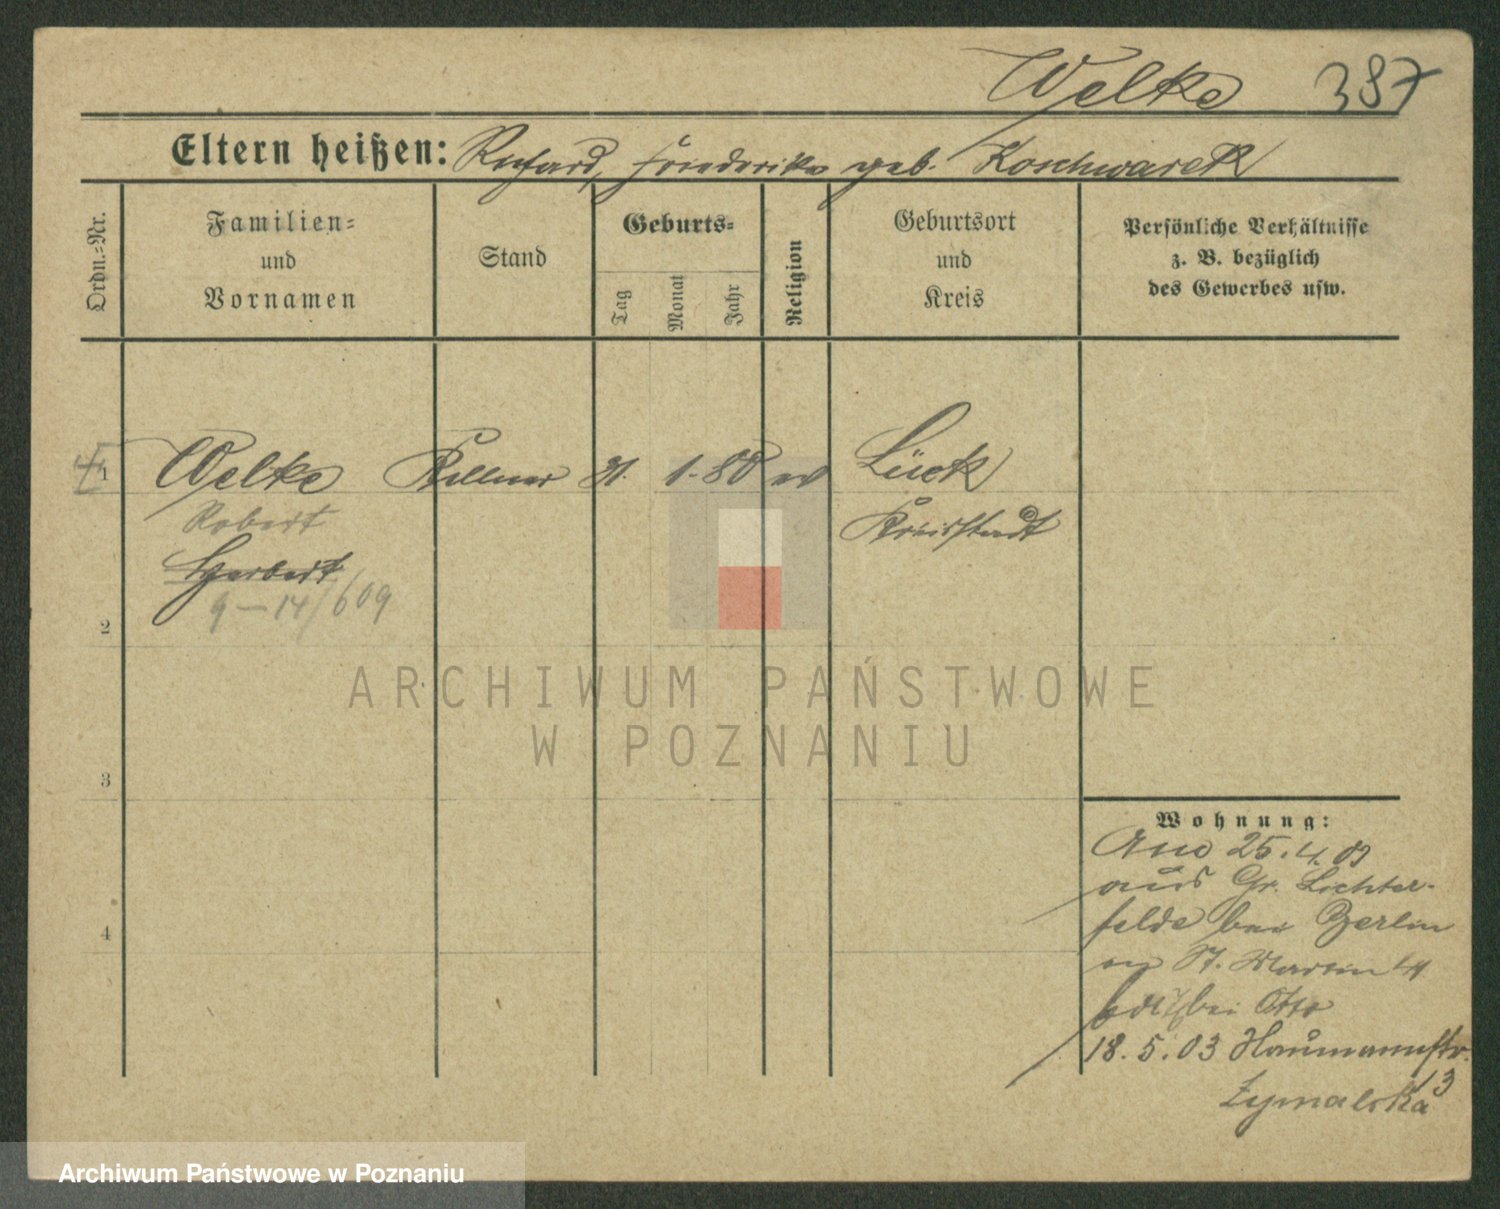 Welke 387
Eltern heißen: Richard, Friederike geb. Koschwarek
Ordn.-Nr.
Familien-
und
Vornamen
Stand
Geburts-
Tag
Monat
Jahr
Religion
Geburtsort
und
Kreis
Persönliche Verhältnisse
z. B. bezüglich
des Gewerbes usw.
1 Welke Kellner 31. 1. 80 ev Lück
Robert Kreisstadt
Herbert
9-14/609
2
ARCHIWUM PAŃSTWOWE
W POZNANIU
3
Wohnung:
25.4.03
aus Gr. Lichter-
felde bei Berlin
St. Martin
bei Otto
4
18.5.03 Naumannstr.
13
Zymalska
Archiwum Państwowe w Poznaniu